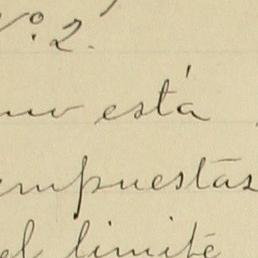 Nº. 2.
está
empuestas
el limite